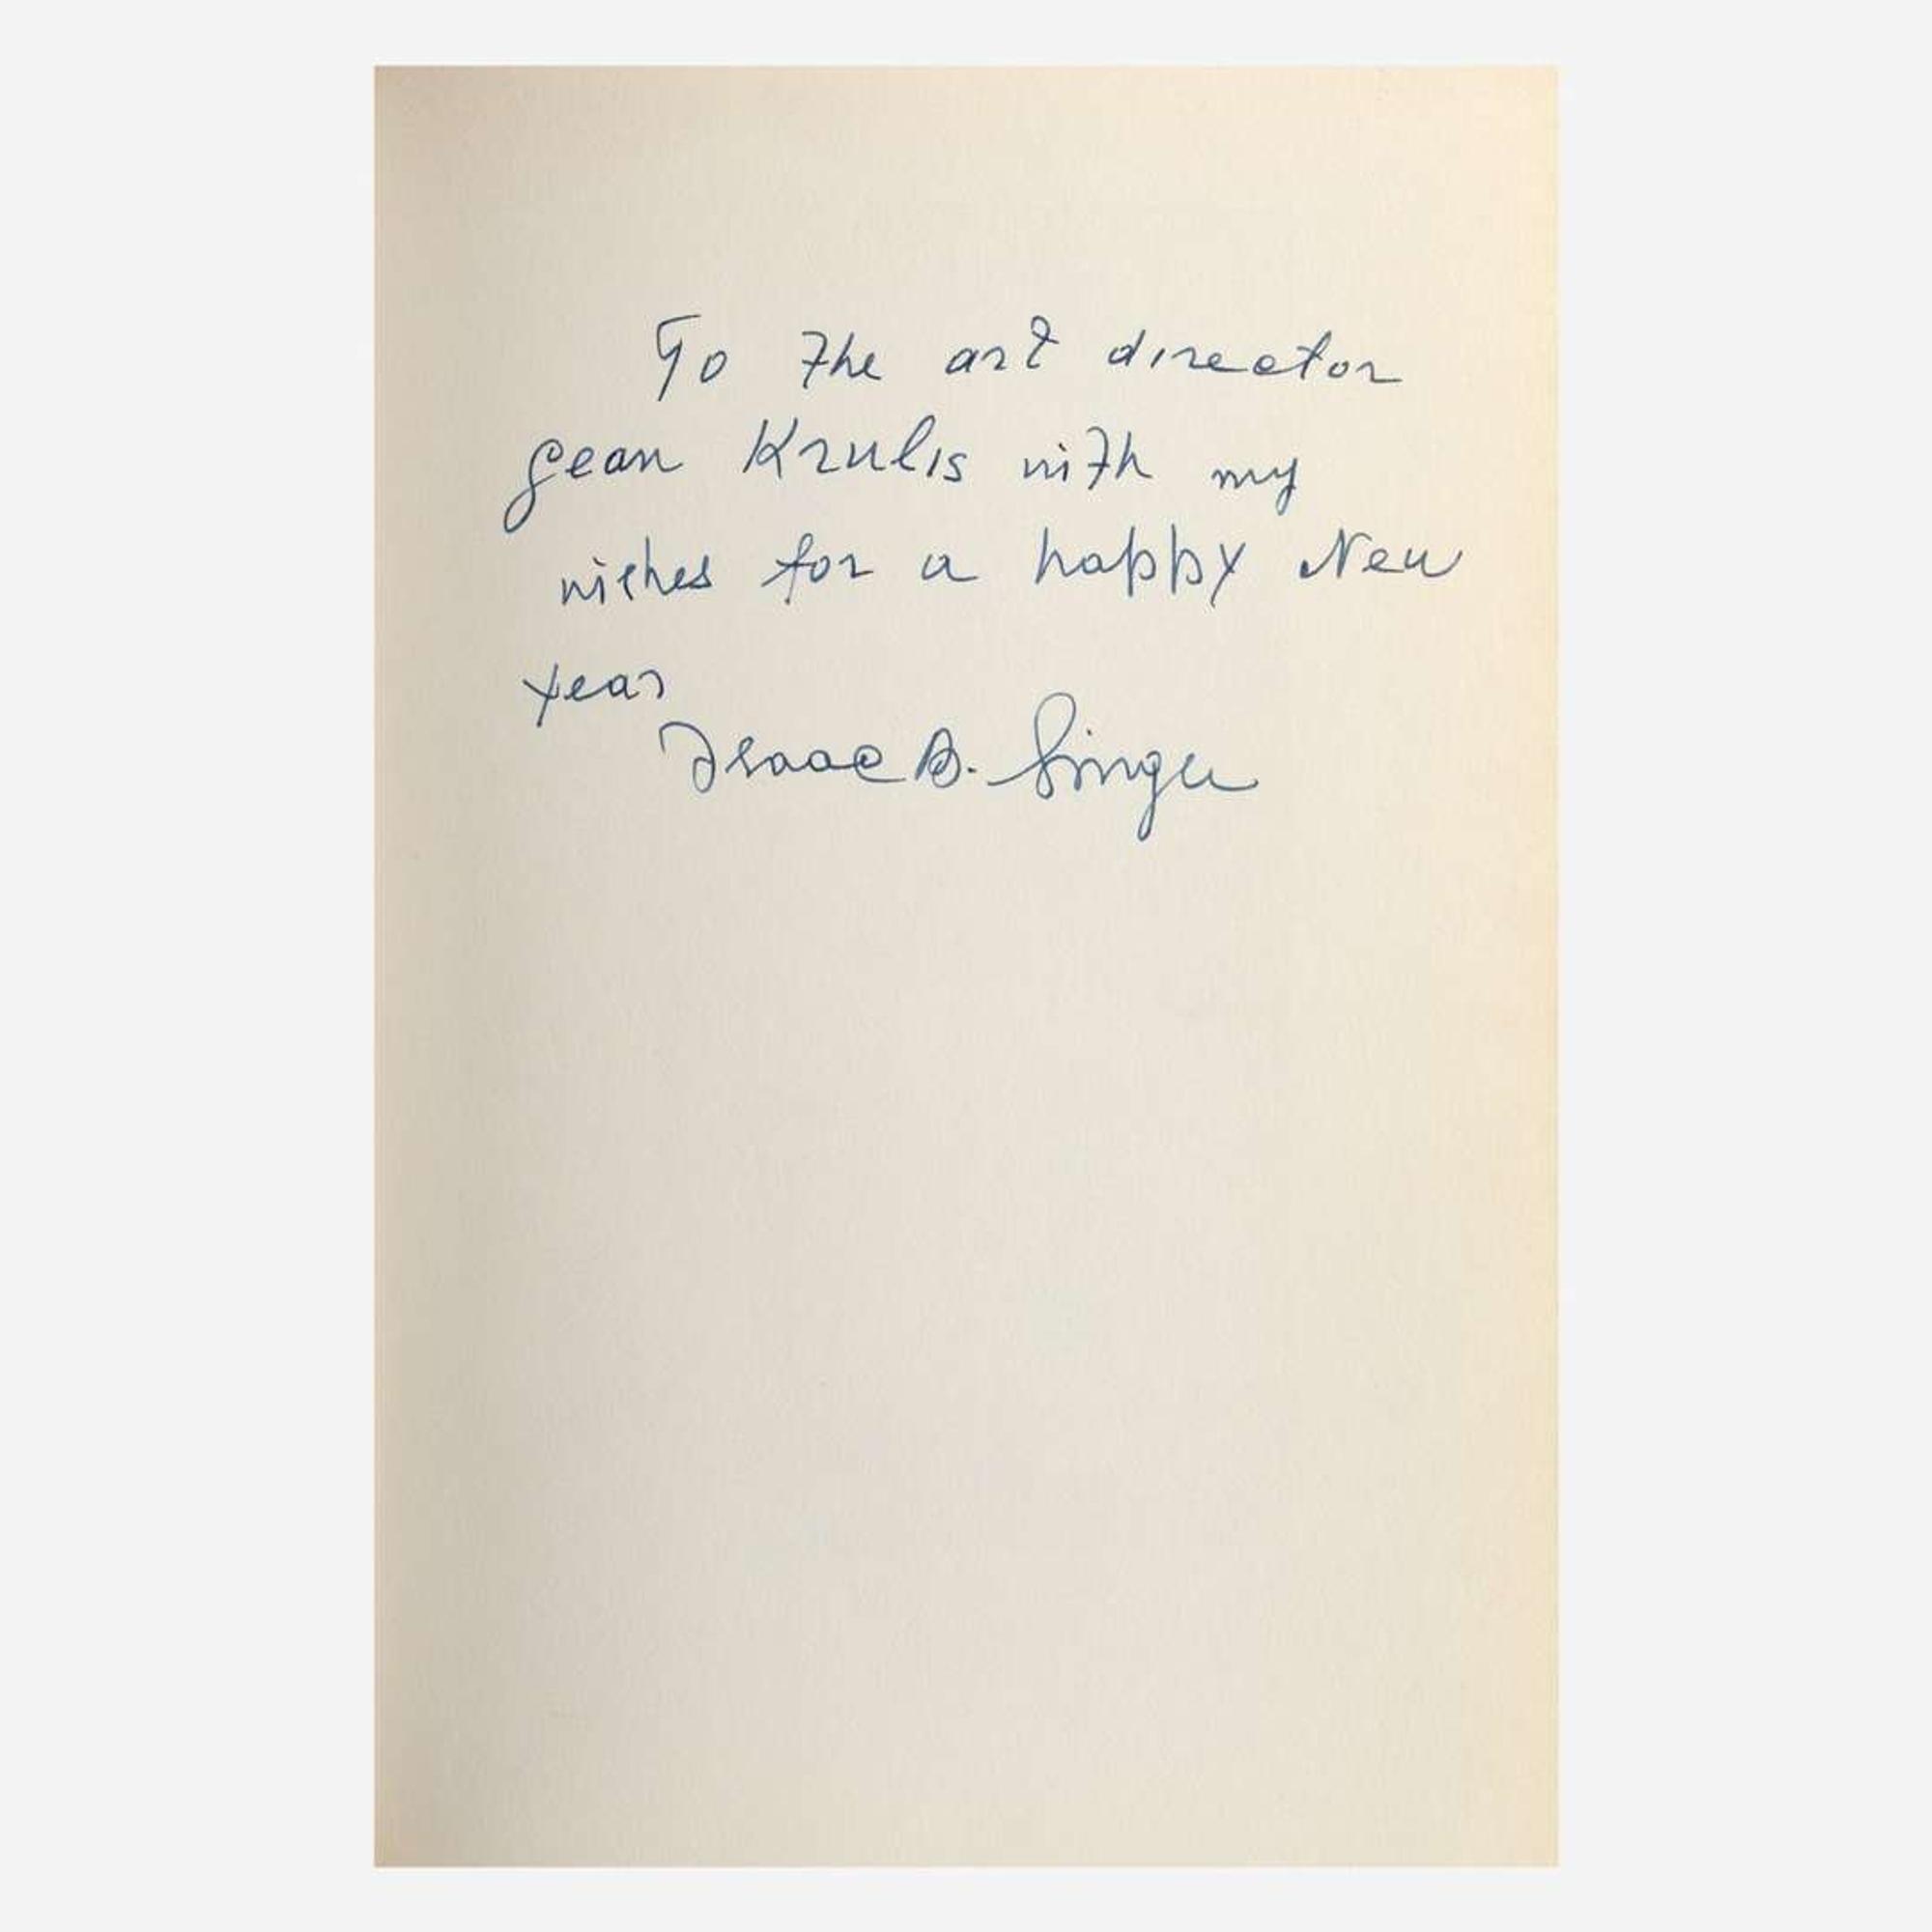 To the art director
Jean Krulis with my
wishes for a happy New
Year
Isaac B. Singer